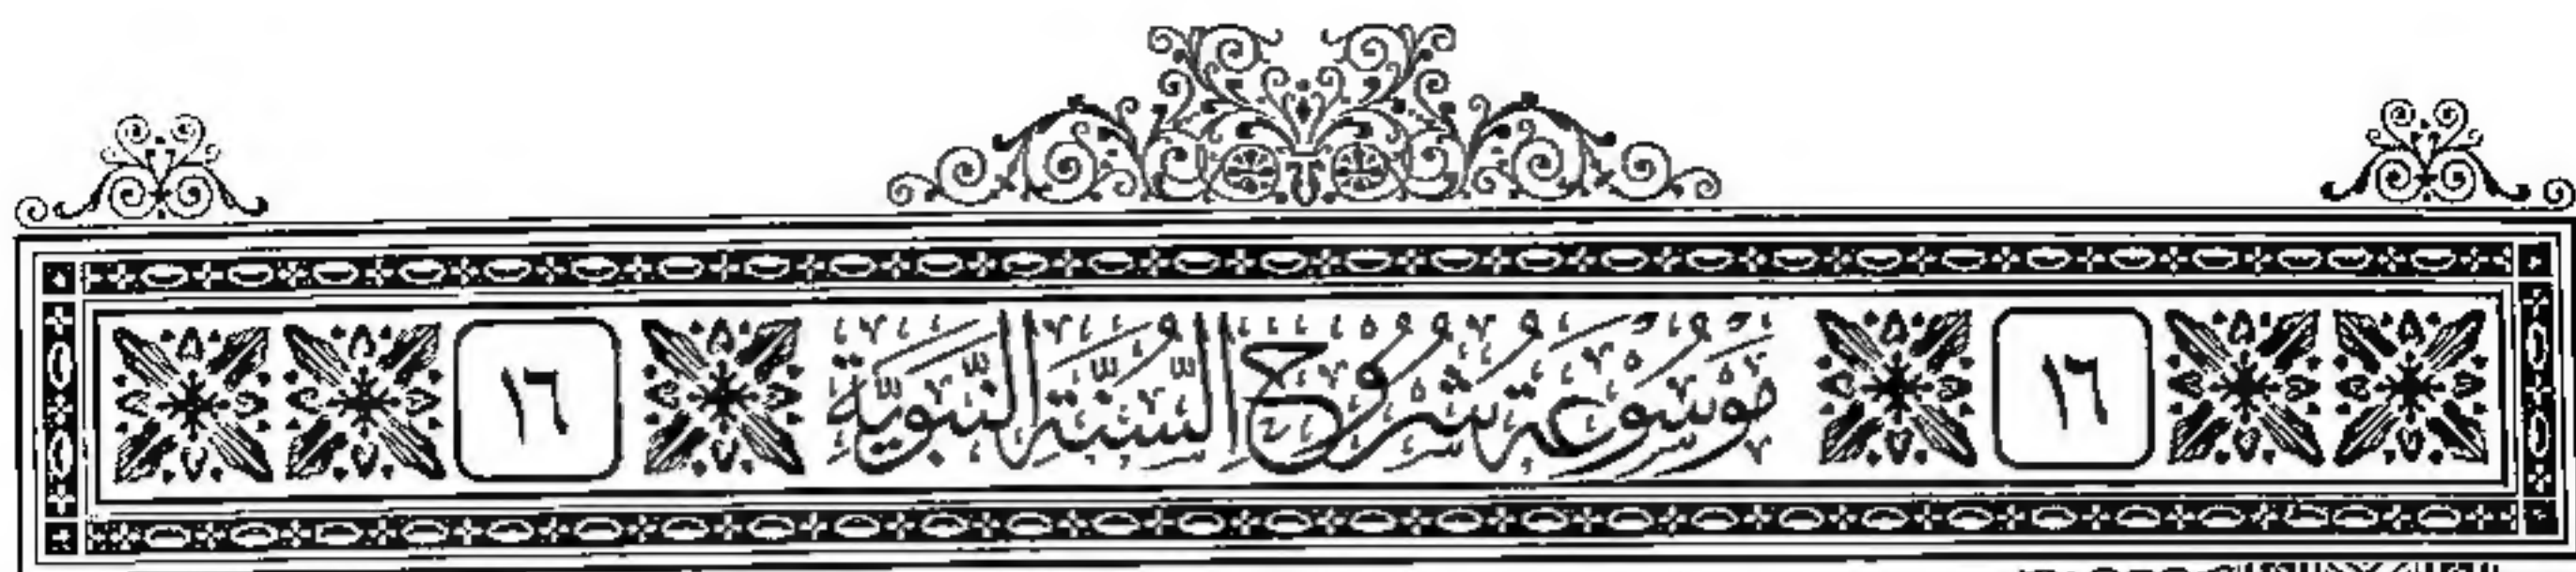 ١٦ موسوعة شروح السنة النبوية ١٦